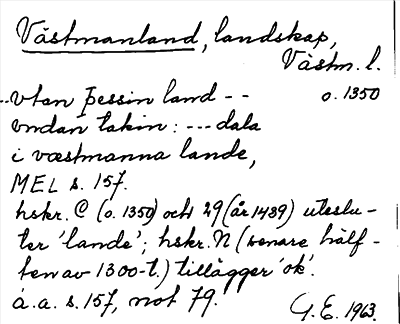 Västmanland, landskap,
Västm. l.
--vtan þessin land -- o. 1350
vndan takin: --- dala
i væstmanna lande,
MEL s. 157.
hskr. C (o. 1350) och 29 (år 1439) uteslu-
ter 'lande'; hskr. N (senare hälf-
ten av 1300-t.) tillägger 'ok'.
a.a. s. 157, not 79.
G.E. 1963.